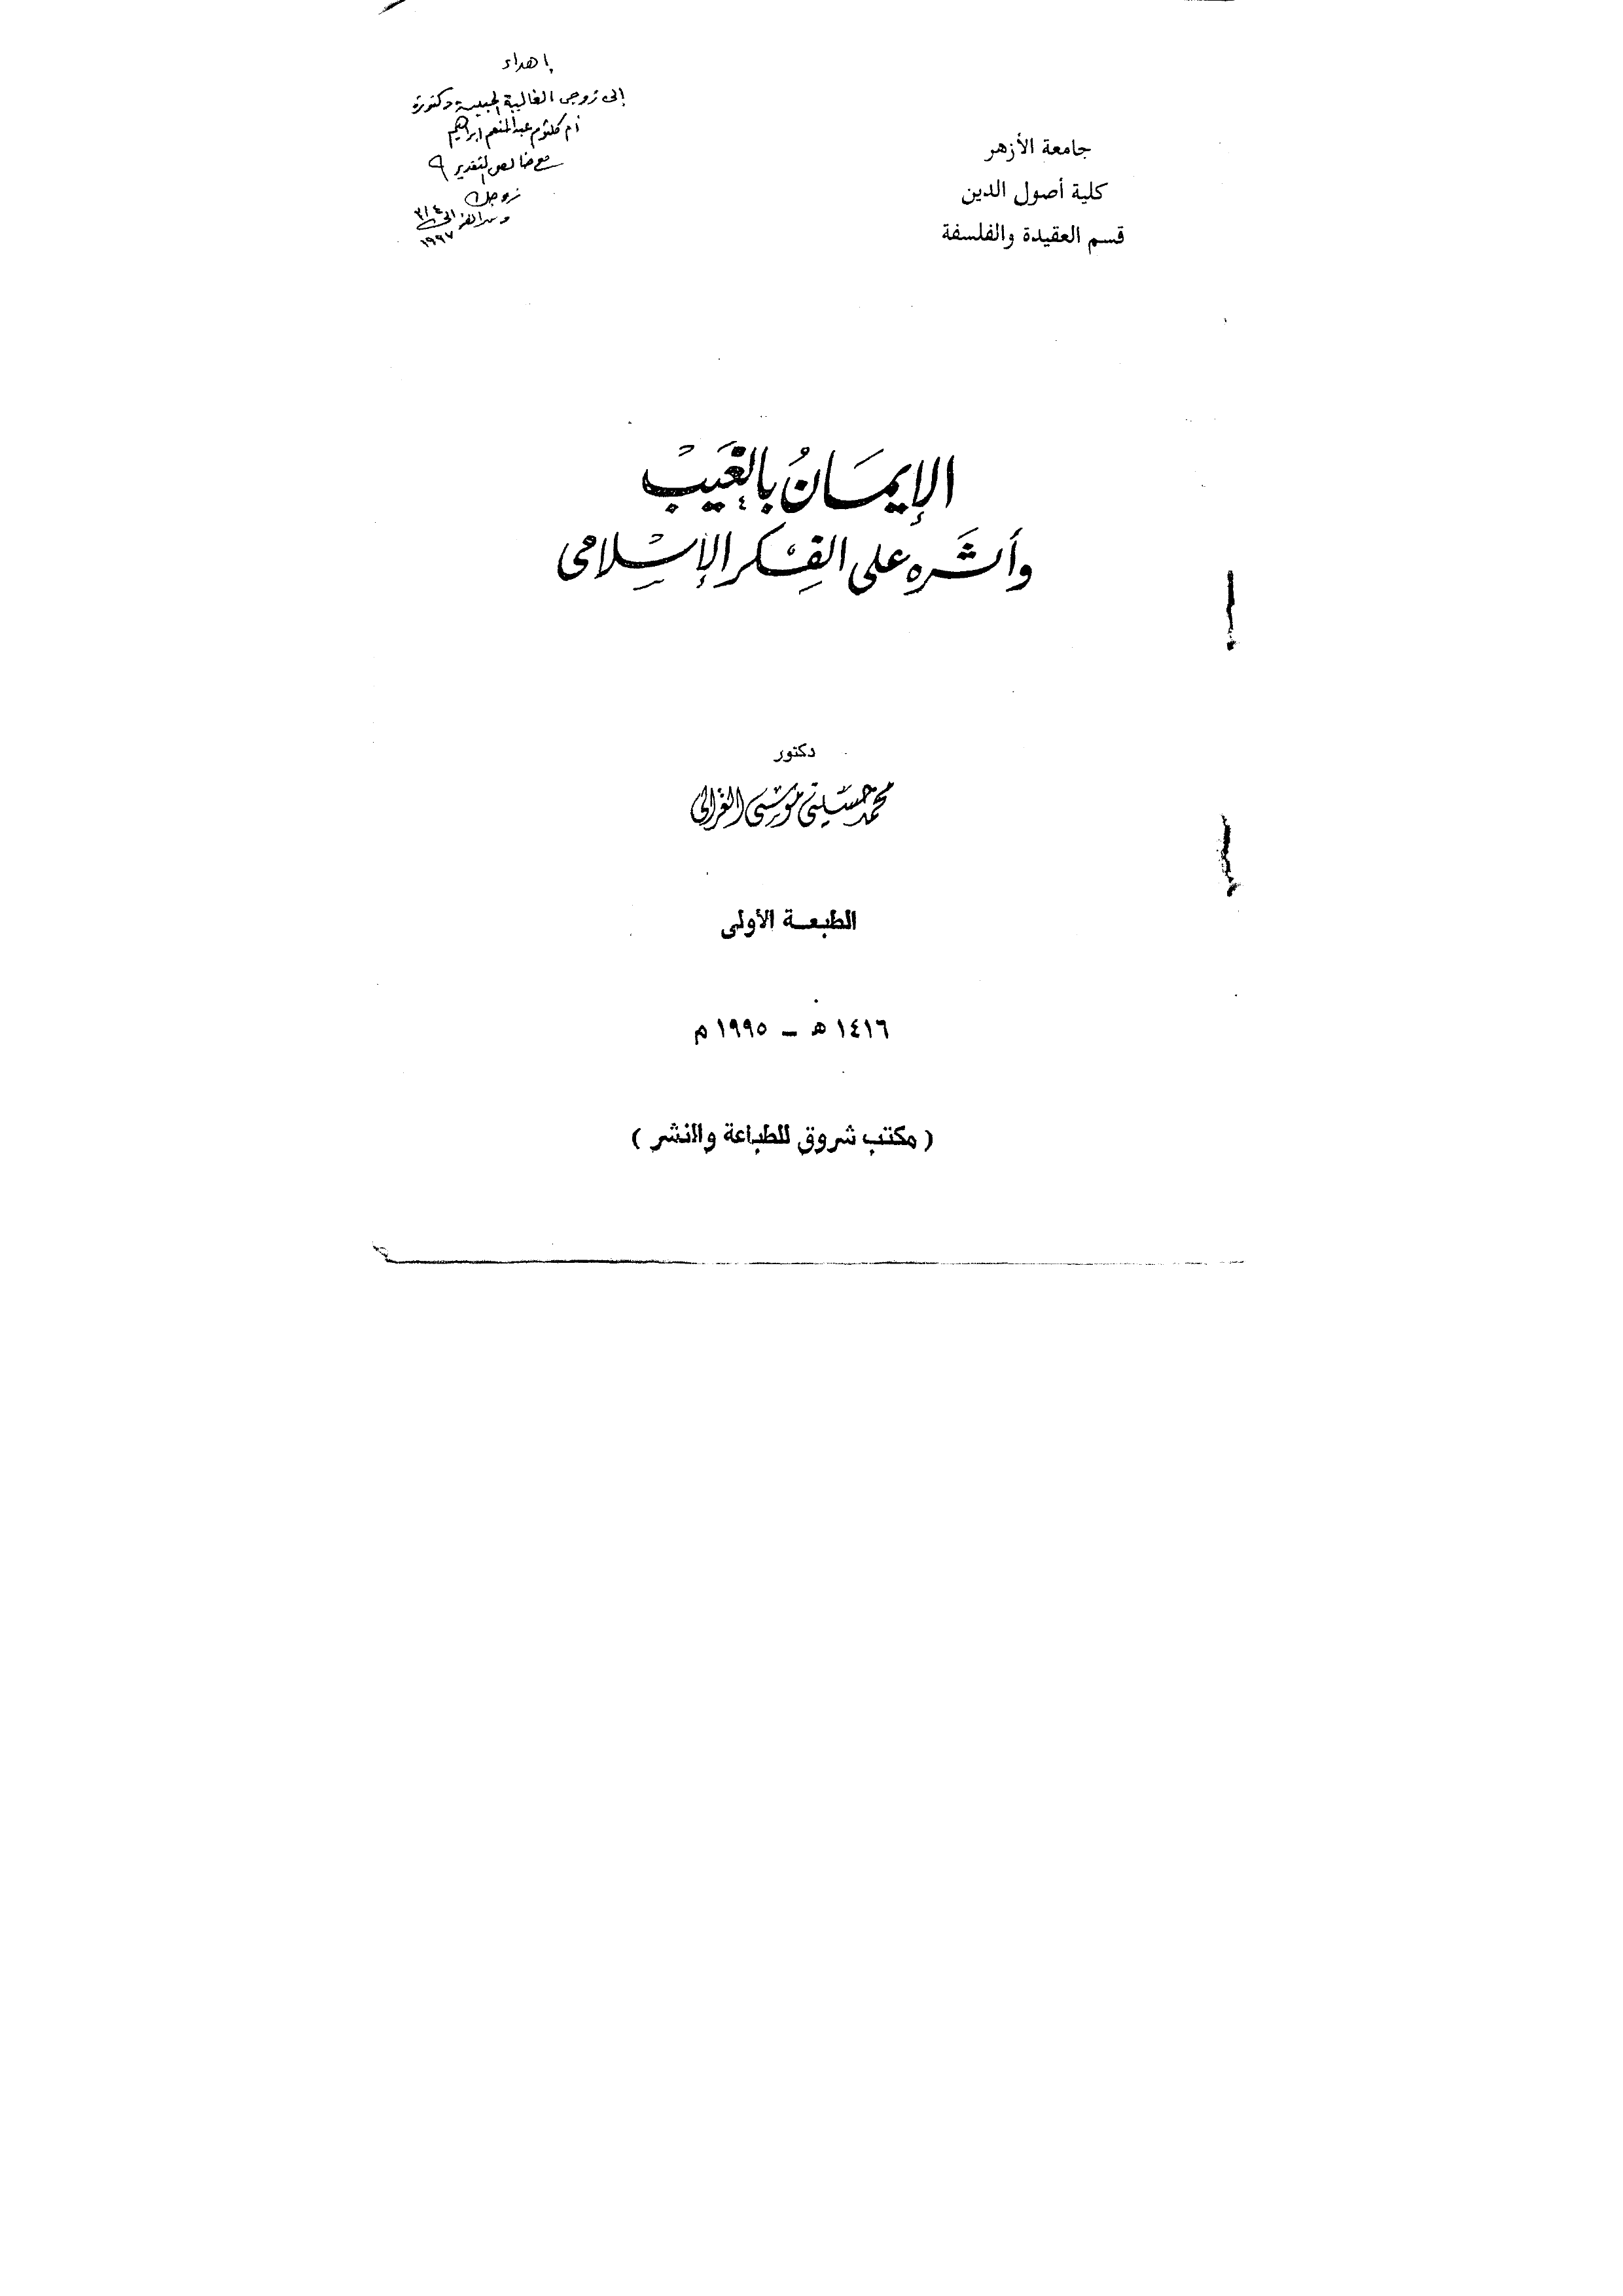 إهداء
إلى زوجى الغالية الحبيبة دكتورة
أم كلثوم عبد المنعم ابراهيم
مع خالص التقدير
زوجك
الغزالى ٣/٤
١٩٩٧
جامعة الأزهر
كلية أصول الدين
قسم العقيدة والفلسفة
الإيمَانُ بالغَيْبْ
وأثَره على الفِكر الإسْلامى
دكتور
محمد حسينى موسى الغزالى
الطبعة الأولى
١٤١٦ هـ – ١٩٩٥ م
( مكتب شروق للطباعة والنشر )